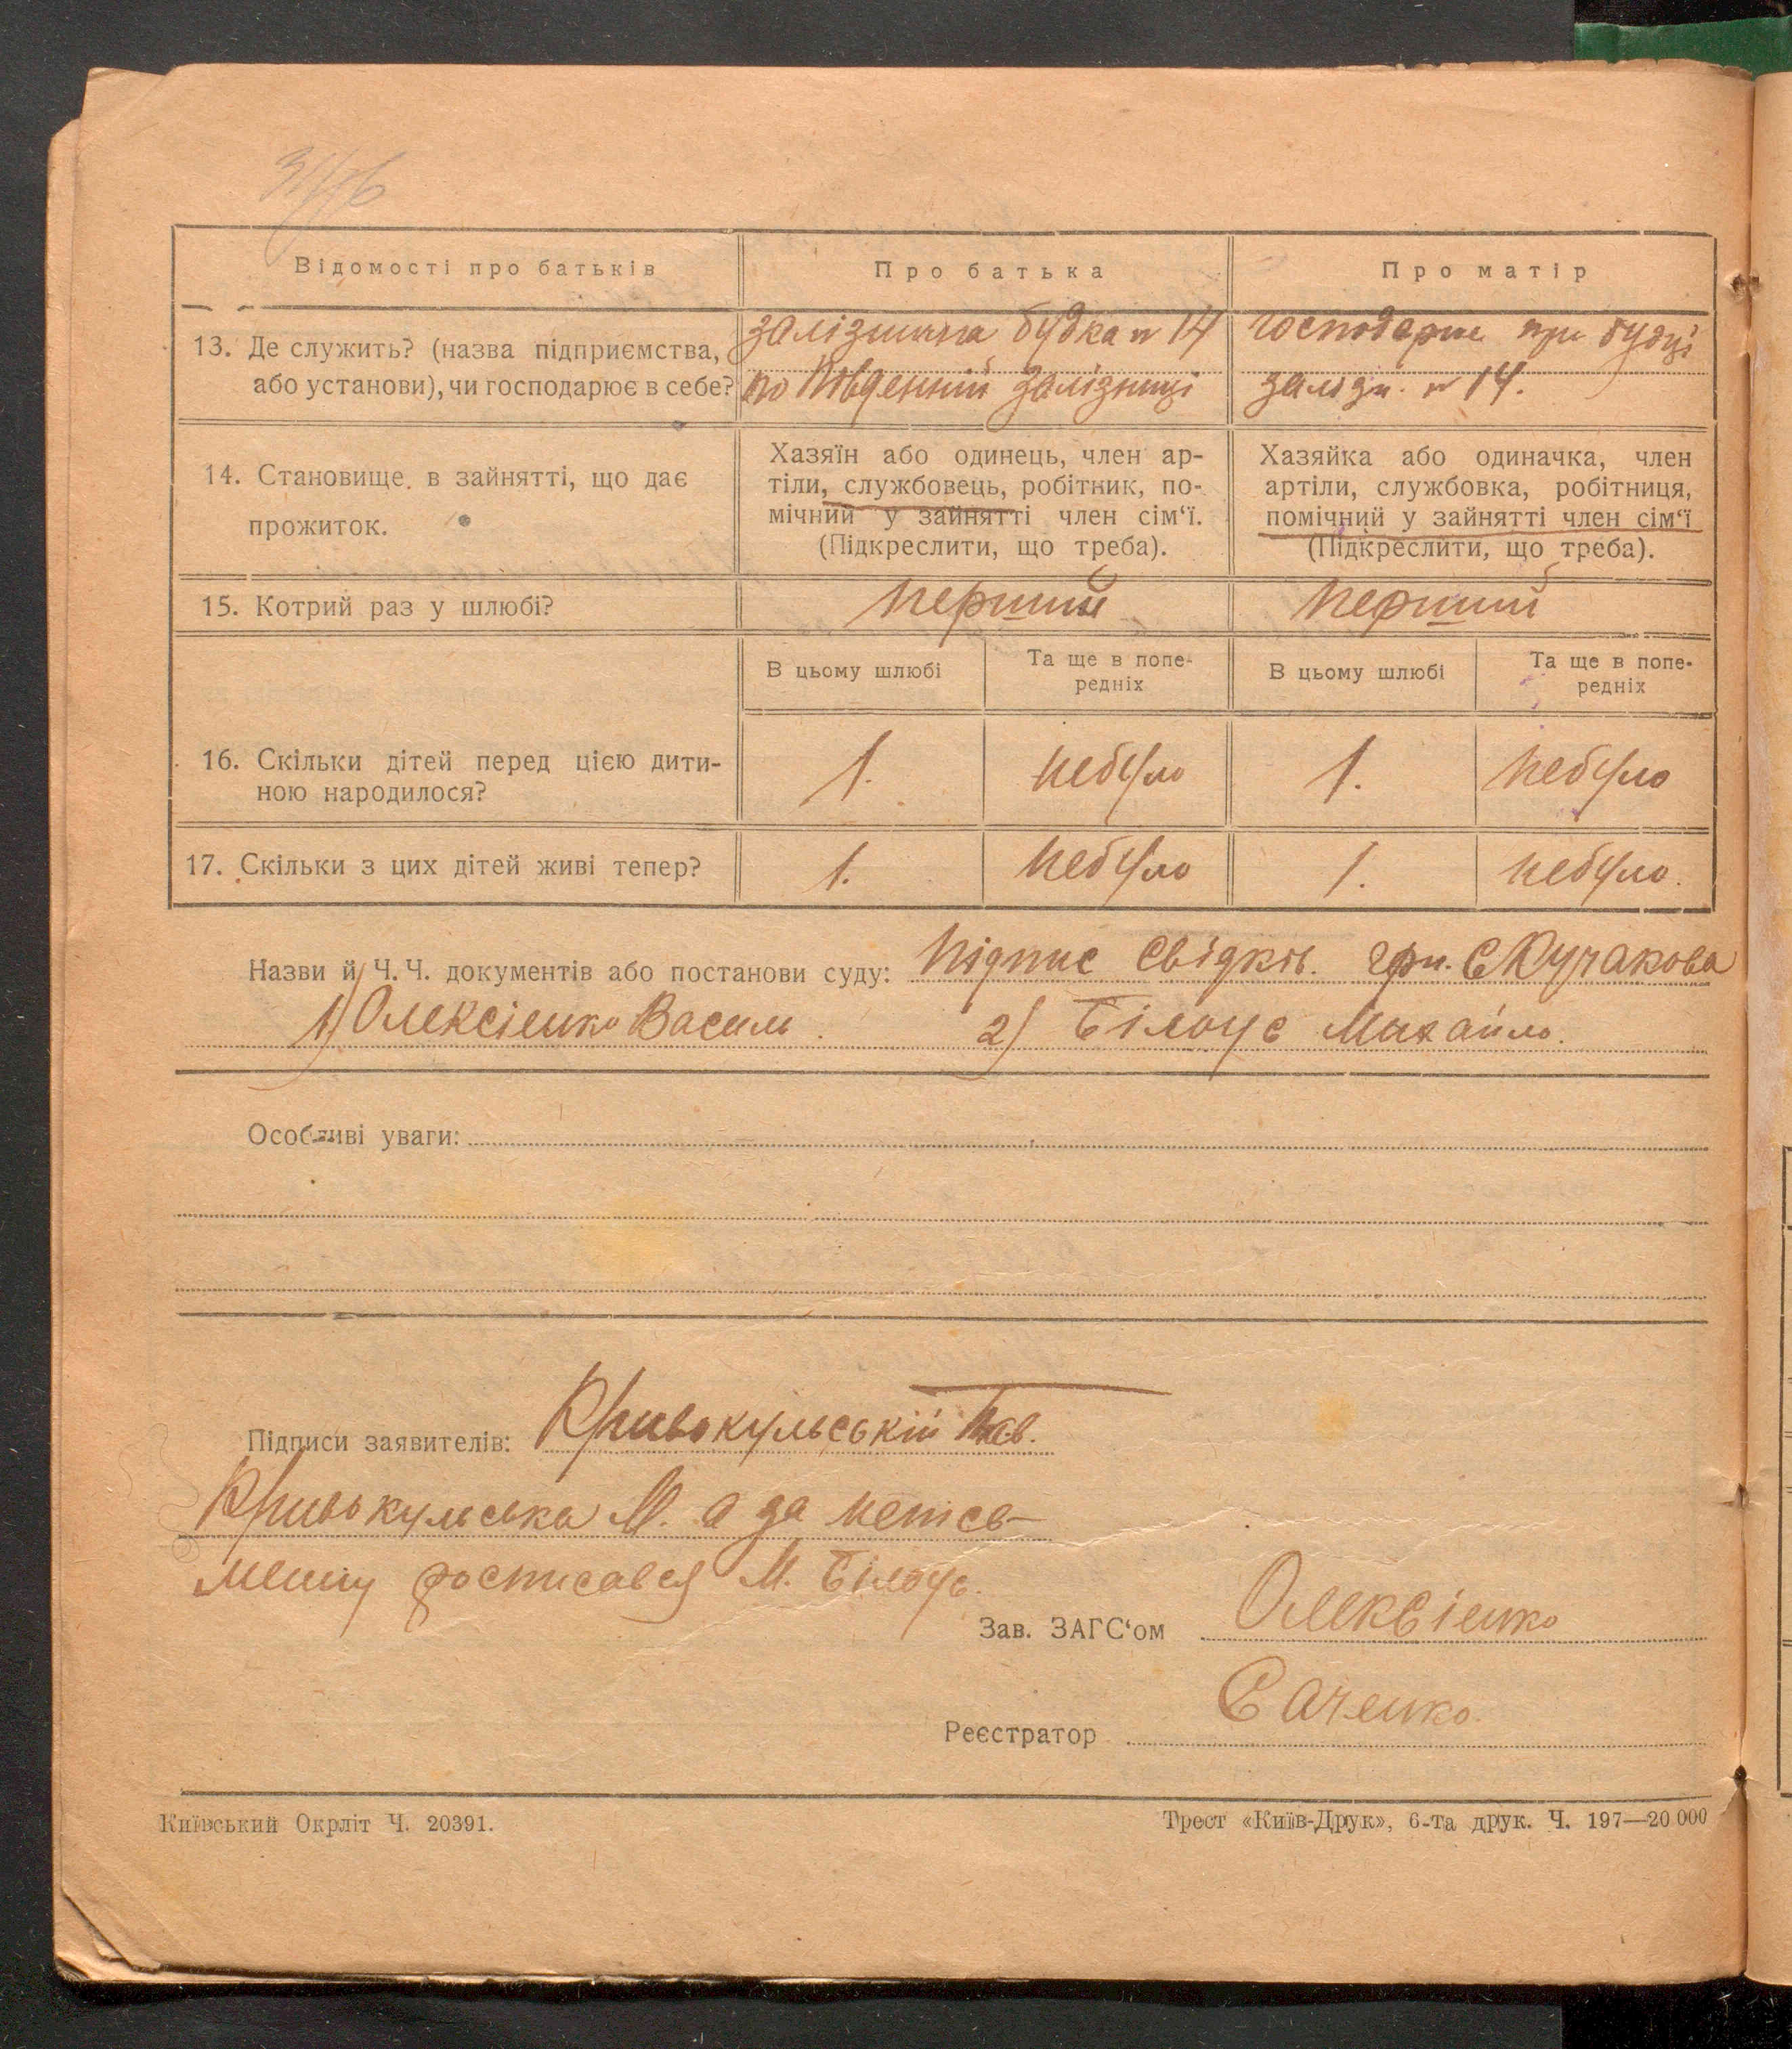 Відомості про батьків
Про батька
Про матір
13. Де служить? (назва підприємства,
або установи), чи господарює в себе?
залізнична будка № 14
по Південній залізниці
господарює при будці
залізн. № 14.
14. Становище в зайнятті, що дає
прожиток.
Хазяїн або одинець, член ар-
тіли, службовець, робітник, по-
мічний у зайнятті член сім‘ї.
(Підкреслити, що треба).
Хазяйка або одиначка, член
артіли, службовка, робітниця,
помічний у зайнятті член сім‘ї
(Підкреслити, що треба).
15. Котрий раз у шлюбі?
перший
перший
В цьому шлюбі
Та ще в попе-
редніх
В цьому шлюбі
Та ще в попе-
редніх
16. Скільки дітей перед цією дити-
ною народилося?
1.
небуло
1.
небуло
17. Скільки з цих дітей живі тепер?
1.
небуло
1.
небуло.
Назви й Ч. Ч. документів або постанови суду: Підпис свідків. грн. Є Кучакова
1) Олексієнко Василь. 2) Білоус Михайло.
Особливі уваги:
Підписи заявителів: Кривокульській Пав.
Кривокульська М. а за непись-
менну росписався М. Білоус.
Зав. ЗАГС‘ом Олексієнко
Реєстратор Саченко.
Київський Окрліт Ч. 20391.
Трест «Київ-Друк», 6-та друк. Ч. 197—20 000